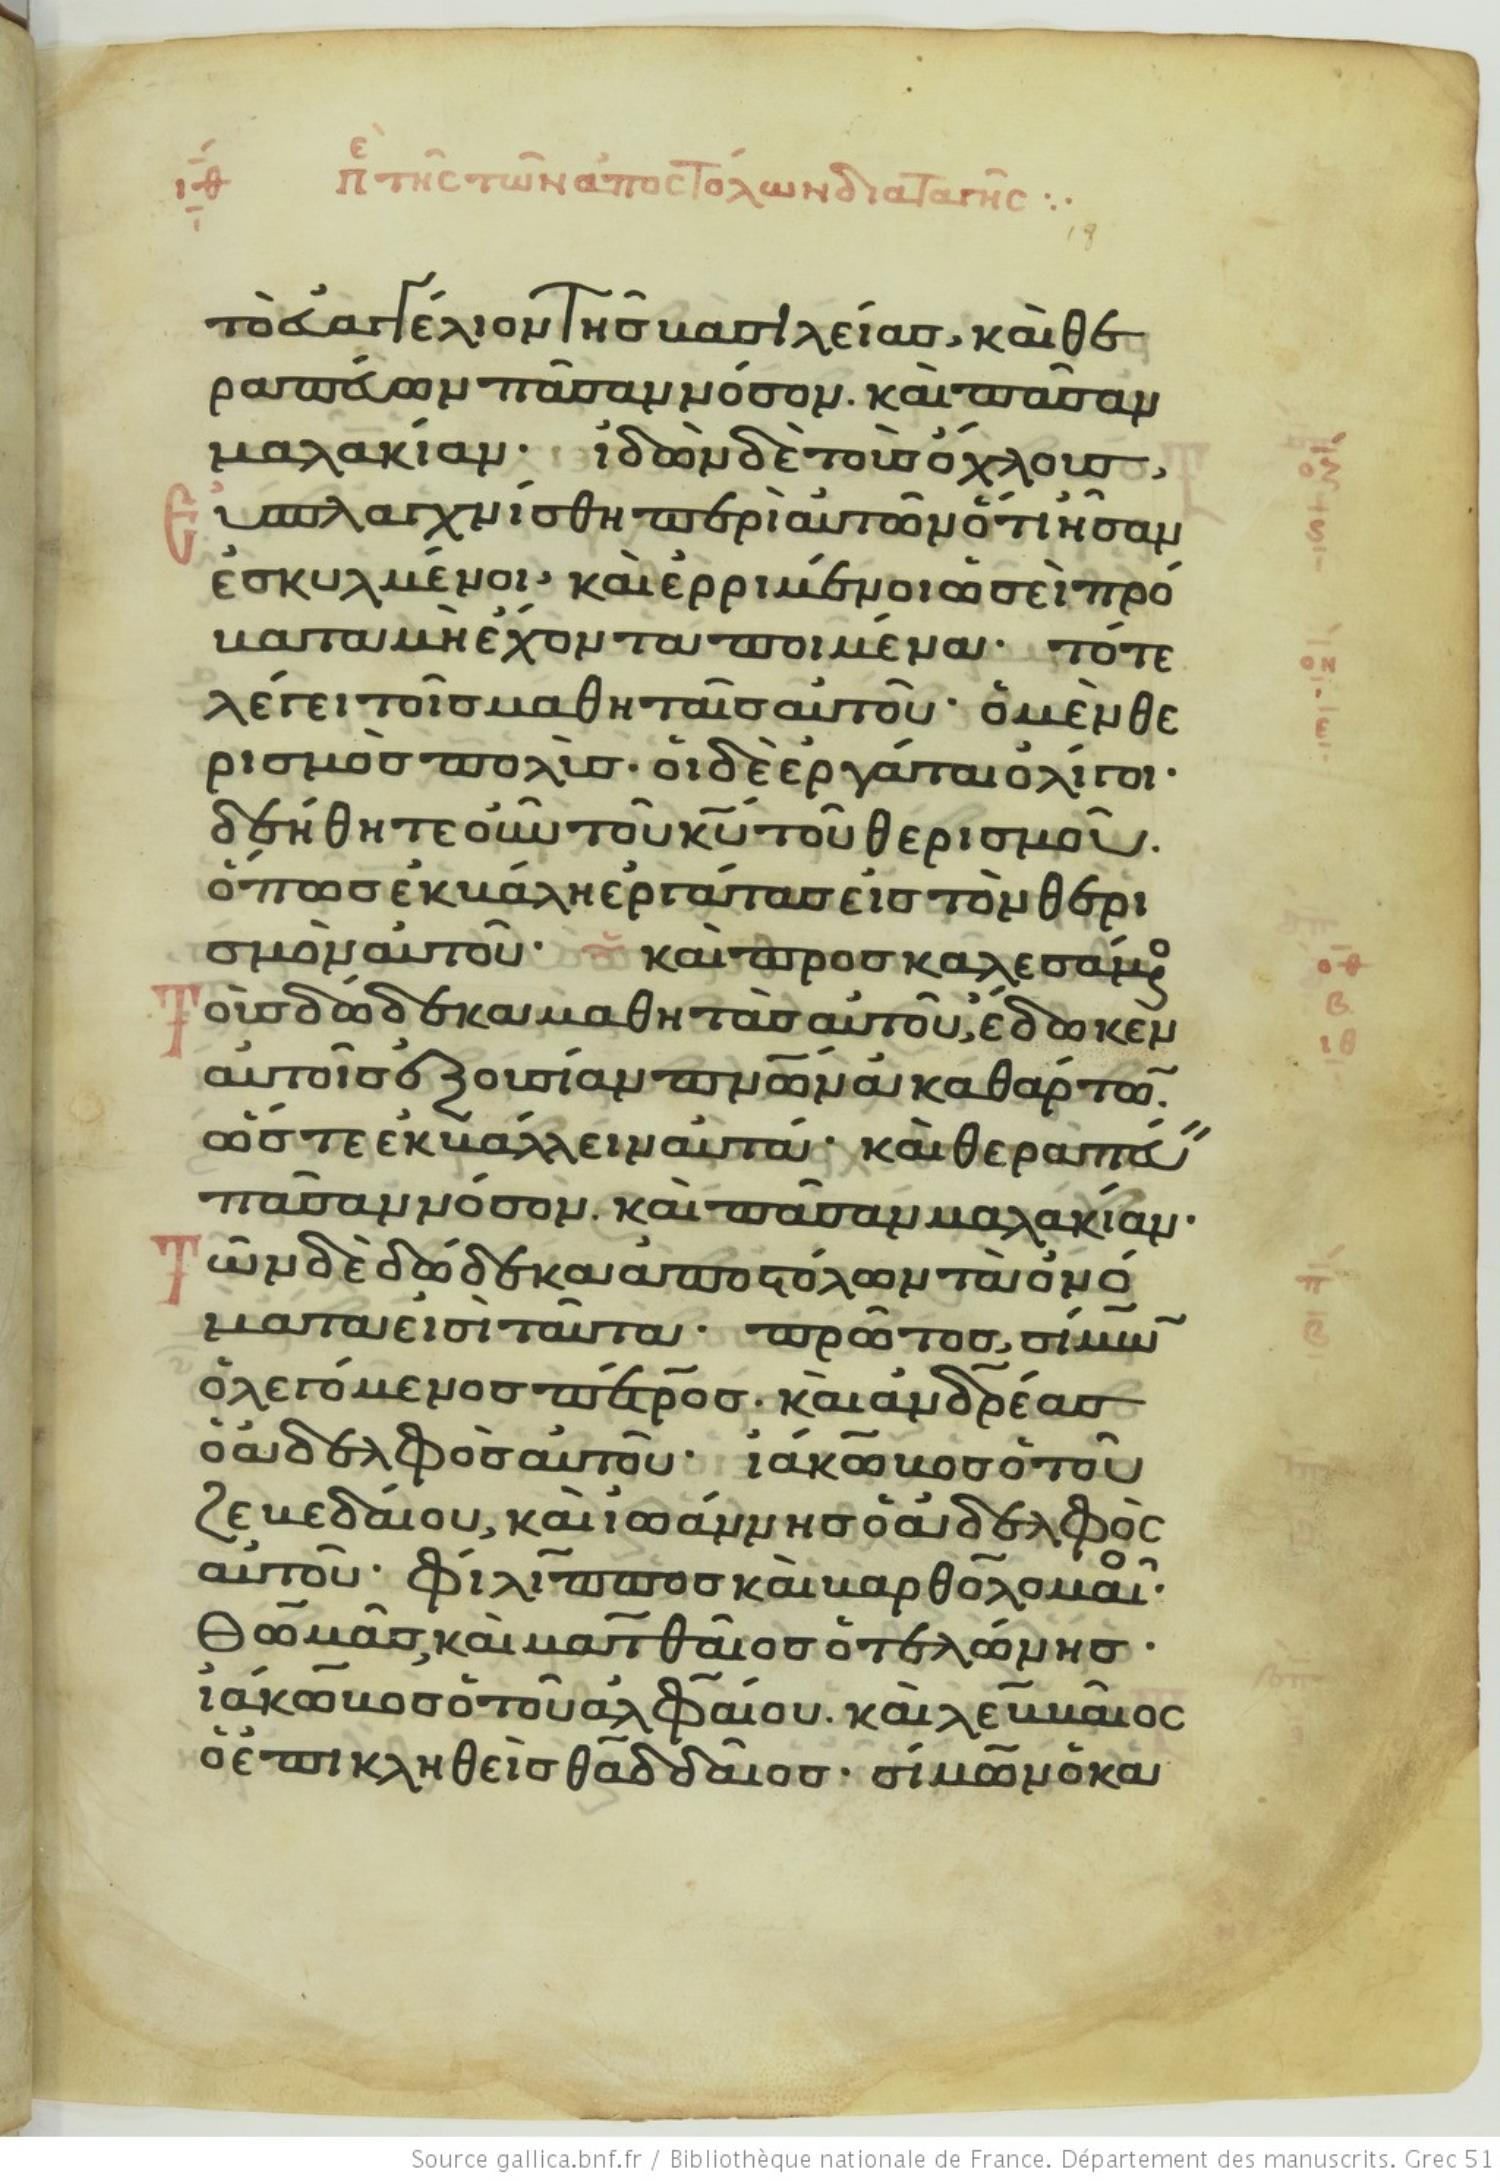 ιθ ΠΕ τῆς τῶν ἀποστόλων διαταγῆς
τὸ εὐαγγέλιον τῆς βασιλείας, καὶ θε
ραπεύων πᾶσαν νόσον. καὶ πᾶσαν
μαλακίαν· ἰδὼν δὲ τοὺς ὄχλους,
Εσπλαγχνίσθη περὶ αὐτῶν ὅτι ἦσαν
ἐσκυλμένοι, καὶ ἐρριμένοι ὡσεὶ πρό
βατα μὴ ἔχοντα ποιμένα· τότε
λέγει τοῖς μαθηταῖς αὐτοῦ· ὁ μὲν θε
ρισμὸς πολὺς· οἱ δὲ ἐργάται ὀλίγοι·
δεήθητε οὖν τοῦ κ̅υ̅ τοῦ θερισμοῦ.
ὅπως ἐκβάλη ἐργάτας εἰς τὸν θερι
σμὸν αὐτοῦ· καὶ προσκαλεσάμενος
Τοὺς δώδεκα μαθητὰς αὐτοῦ, ἔδωκεν
αὐτοῖς ἐξουσίαν πνῶν ἀκαθάρτω̅.
ὥστε ἐκβάλλειν αὐτά· καὶ θεραπεύ
πᾶσαν νόσον. καὶ πᾶσαν μαλακίαν·
Τῶν δὲ δώδεκα ἀποστόλων τὰ ὀνό
ματα εἰσὶ ταῦτα· πρῶτος, σίμων
ὁ λεγόμενος πέτρος. καὶ ἀνδρέας
ὁ ἀδελφὸς αὐτοῦ· ἰάκωβος ὁ τοῦ
ζεβεδαίου, καὶ ἰωάννης ὁ ἀδελφὸς
αὐτοῦ· φίλιππος καὶ βαρθολομαῖο·
Θωμᾶς, καὶ ματθαῖος ὁ τελώνης·
ἰάκωβος ὁ τοῦ ἀλφαίου. καὶ λεββαῖος
ὁ ἐπικληθεὶς θαδδαῖος· σίμων ὁ κα
Source gallica.bnf.fr / Bibliothèque nationale de France. Département des manuscrits. Grec 51